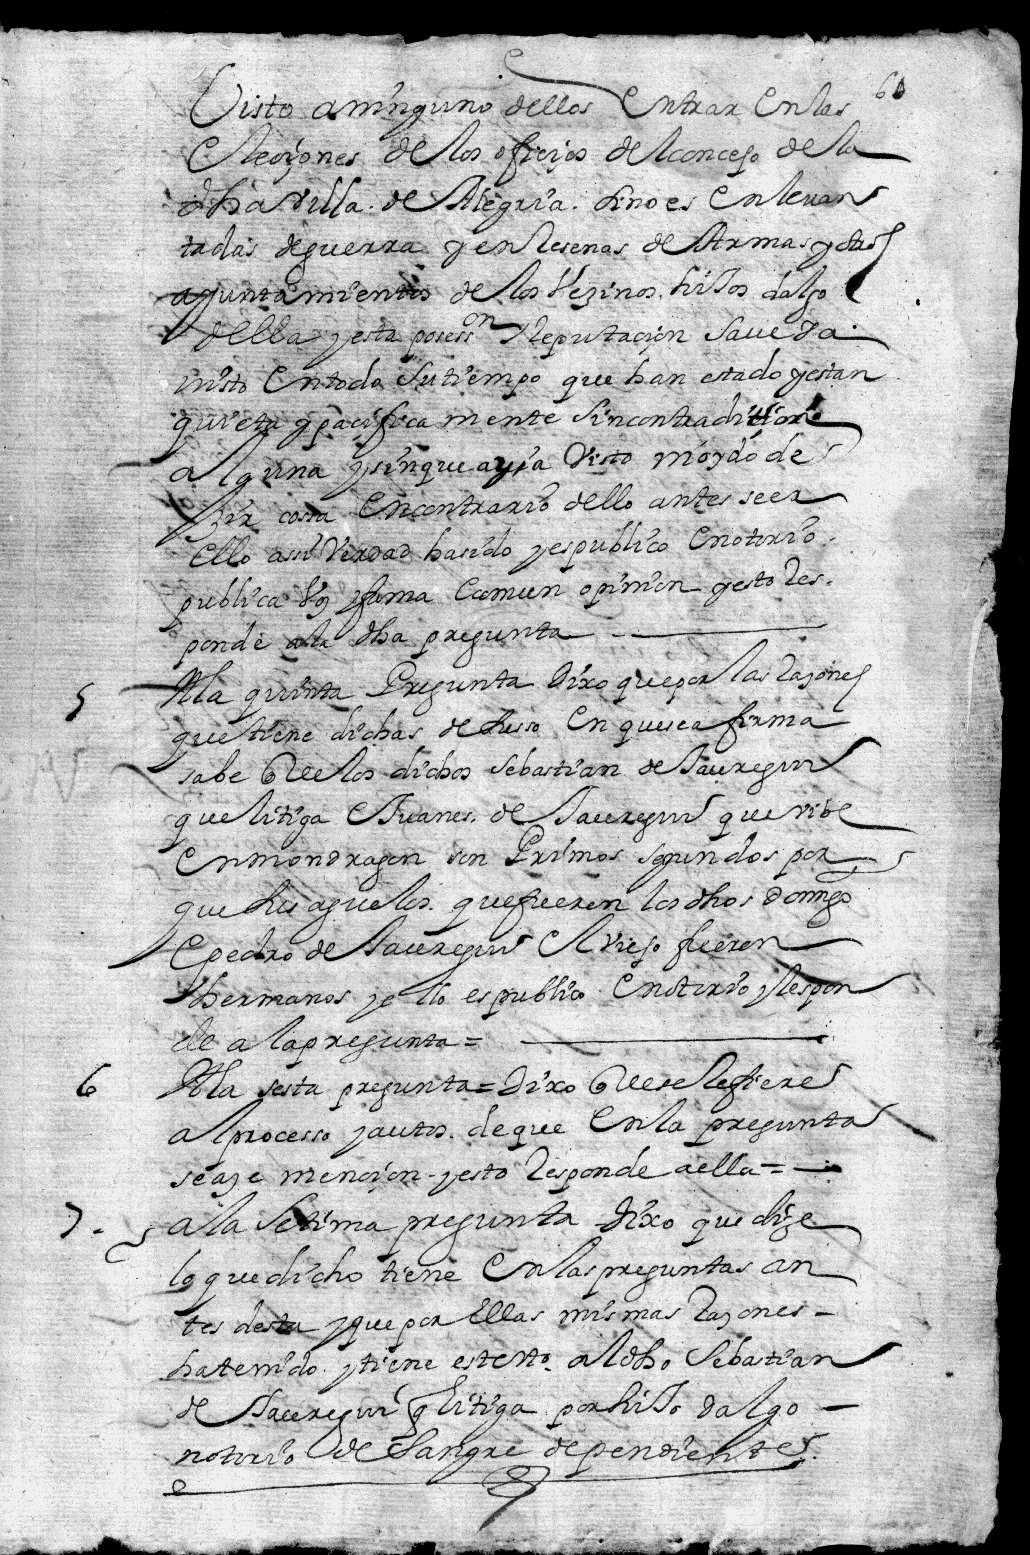 60
Visto aninguno dellos Entrar Enlas
Elecziones de los oficios delconcejo de la
dha villa. de Alegria. sino es Enlevan
tadas deguerra y en Resenas de Armas y otros
ayuntamientos de los Vezinos. hiJos dalgo
della y esta posess.on y Reputazion save Ha
visto Entodo Su tiempo que han estado y estan
quieta y pacifica mente Sin contradition
alguna y sinque ayia Visto ni oydo de
zir cossa Encontrario dello antes seer
Ello assi Verdad hasido y espublico Enotorio
publica Voz y fama E comun opinion y esto Res-
ponde ala dha pregunta
5 Ala quinta Pregunta dixo que por las Razones
que tiene dichas de susso En que se afirma
sabe Que los dichos Sebastian de Jaureguí
que litiga E Juanes. de Jaureguí que vibe
Enmondragon son Primos segundos por
que sus aguelos. que fueron los dhos domgo
E pedro de Jaureguí El viejo fueron
hermanos y ello es publico Enotorio y Respon
de a lapregunta =
6 Ala sesta pregunta = Dixo Que se Refiere
al processo y autos. de que En la pregunta
se aze mencion - y esto Responde a ella =
7. a la Setima pregunta Dixo que dize
lo que dicho tiene En las preguntas an
tes desta y que por Ellas mismas Razones -
hatenido y tiene este to. al dho Sebastian
de Jaureguí q litiga por hiJo dalgo -
notorio de Sangre dependiente